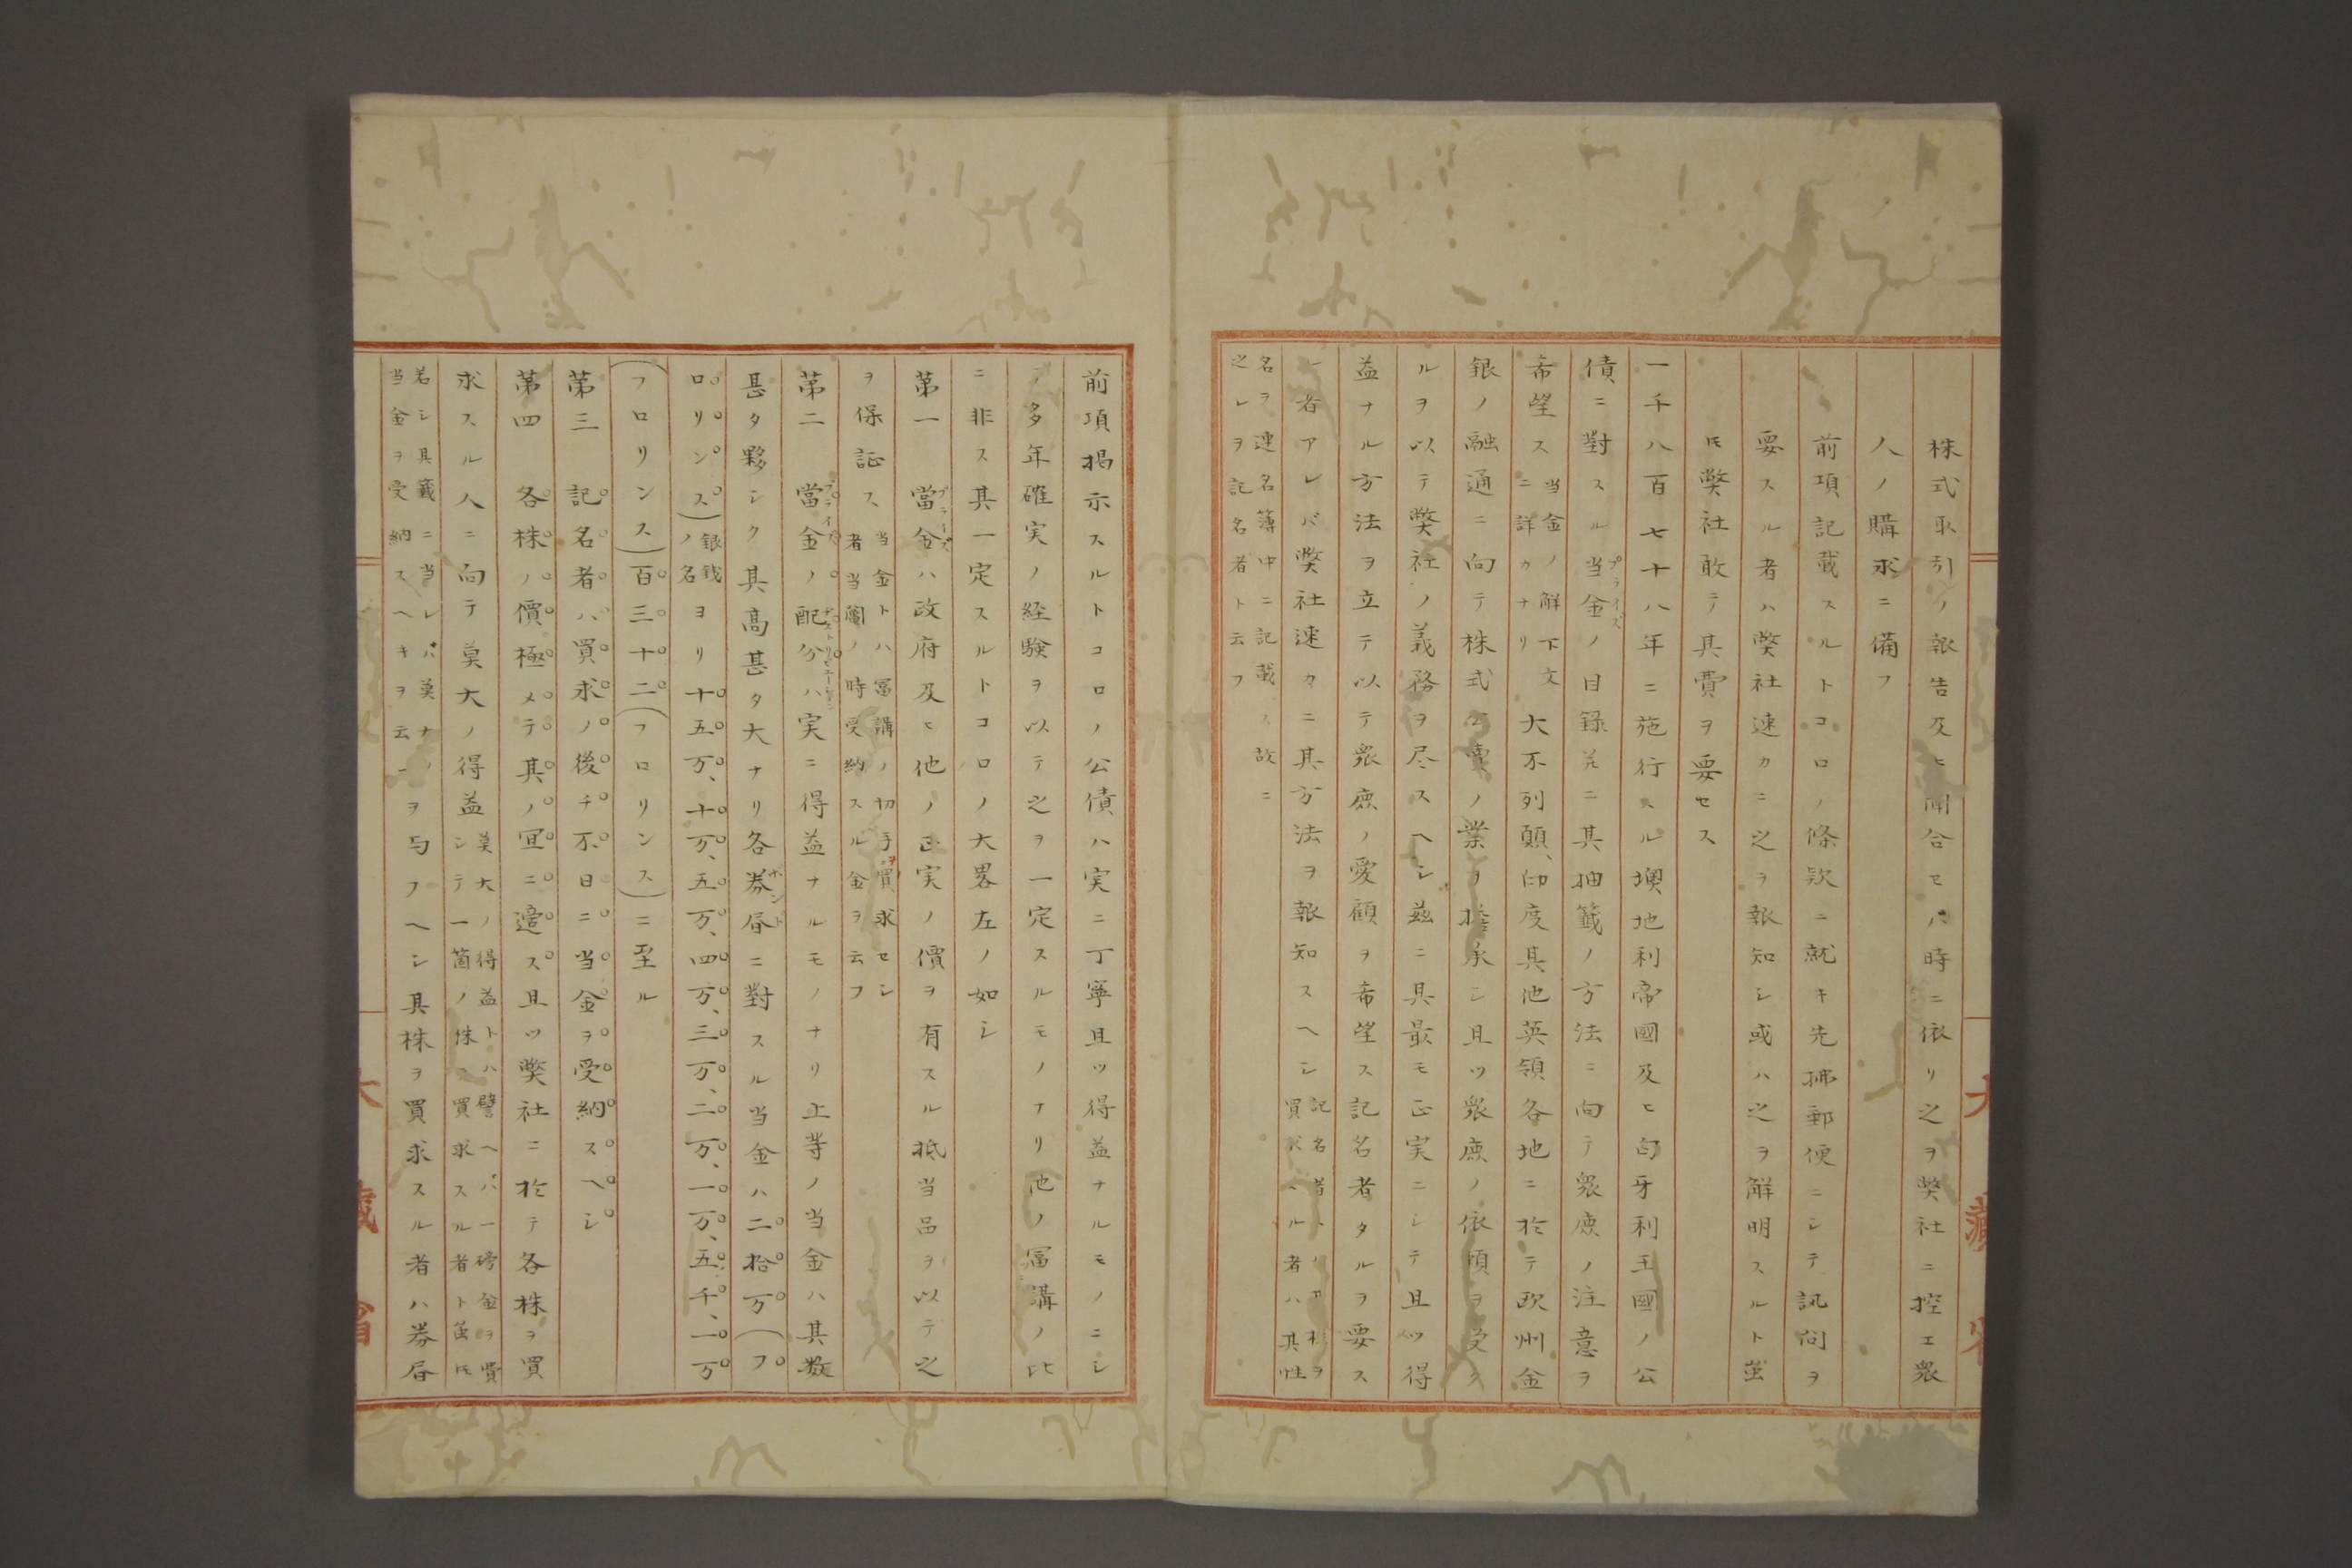 株式取引ノ報告及ヒ聞合セハ時ニ依リ之ヲ弊社ニ控エ衆
人ノ購求ニ備フ
前項記載スルトコロノ條欵ニ就キ先拂郵便ニシテ訊問ヲ
要スル者ハ弊社速カニ之ヲ報知シ或ハ之ヲ解明スルト雖
ㇳモ弊社敢テ其費ヲ要セス
一千八百七十八年ニ施行スル墺地利帝國及ヒ匈牙利王國ノ公
債ニ對スル当金ノ目録並ニ其抽籤ノ方法ニ向テ衆庶ノ注意ヲ
プライズ
希望ス
当金ノ解下文
ニ詳カナリ
大不列顛、印度其他英領各地ニ於テ欧州金
銀ノ融通ニ向テ株式公賣ノ業ヲ擔承シ且ツ衆庶ノ依頼ヲ受ク
ルヲ以テ弊社ノ義務ヲ尽スヘシ茲ニ其最モ正実ニシテ且ツ得
益ナル方法ヲ立テ以テ衆庶ノ愛顧ヲ希望ス記名者タルヲ要ス
ル者アレバ弊社速カニ其方法ヲ報知スヘシ
記名者トハ株ヲ
買求ムル者ハ其姓
名ヲ連名簿中ニ記載ス故ニ
之レヲ記名者ト云フ
前項掲示スルトコロノ公債ハ実ニ丁寧且ツ得益ナルモノニシ
テ多年確実ノ経験ヲ以テ之ヲ一定スルモノナリ他ノ冨講ノ比
ニ非ス其一定スルトコロノ大畧左ノ如シ
第一　當金ハ政府及ヒ他ノ正実ノ價ヲ有スル抵当品ヲ以テ之
プライズ
ヲ保証ス
当金トハ冨講ノ切手ヲ買求セシ
者当籤ノ時受納スル金ヲ云フ
第二　當金ノ配分ハ実ニ得益ナルモノナリ上等ノ当金ハ其数
プライズ
ヂストリビエーション
甚タ夥シク其高甚タ大ナリ各券昏ニ對スル当金ハ二拾万(フ
ボンド
ロリンス)
銀銭
ノ名
ヨリ十五万、十万、五万、四万、三万、二万、一万、五千、一万
(フロリンス)百三十二(フロリンス)ニ至ル
第三　記名者ハ買求ノ後チ不日ニ当金ヲ受納スヘシ
第四　各株ノ價極メテ其ノ宜ニ適ス且ツ弊社ニ於テ各株ヲ買
求スル人ニ向テ莫大ノ得益
莫大ノ得益トハ譬ヘバ一磅金ヲ費
シテ一箇ノ株ヲ買求スル者ト雖ㇳモ
若シ其籤ニ当レバ莫大ノ
当金ヲ受納スヘキヲ云フ
ヲ与フヘシ其株ヲ買求スル者ハ券昏
大藏省